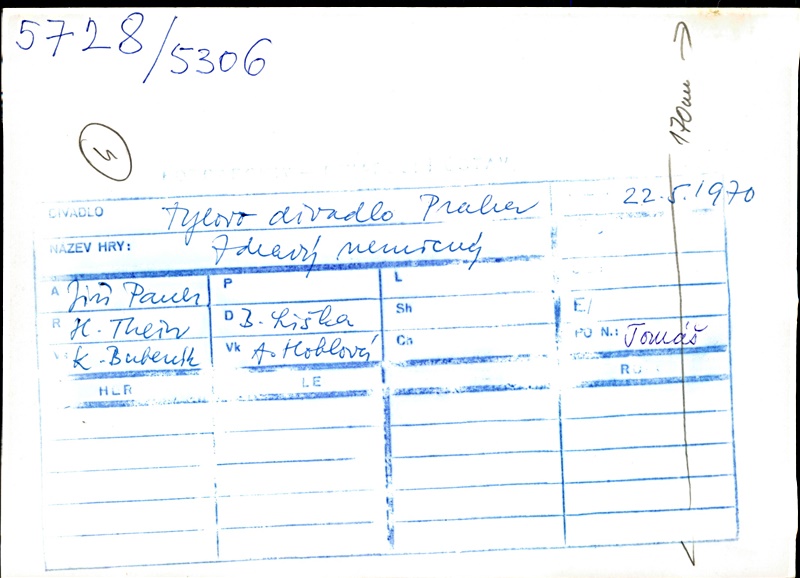 5728/5306
170mm
5
22.5.1970
DIVADLO Tylovo divadlo Praha
NÁZEV HRY: Zdravý nemocný
A Jiří Pauer P L
R H. Thein D B. Liška Sh E/
K. Bubeník Vk A. Hoblová Ch PO N.: Tomáš
HER LE RO